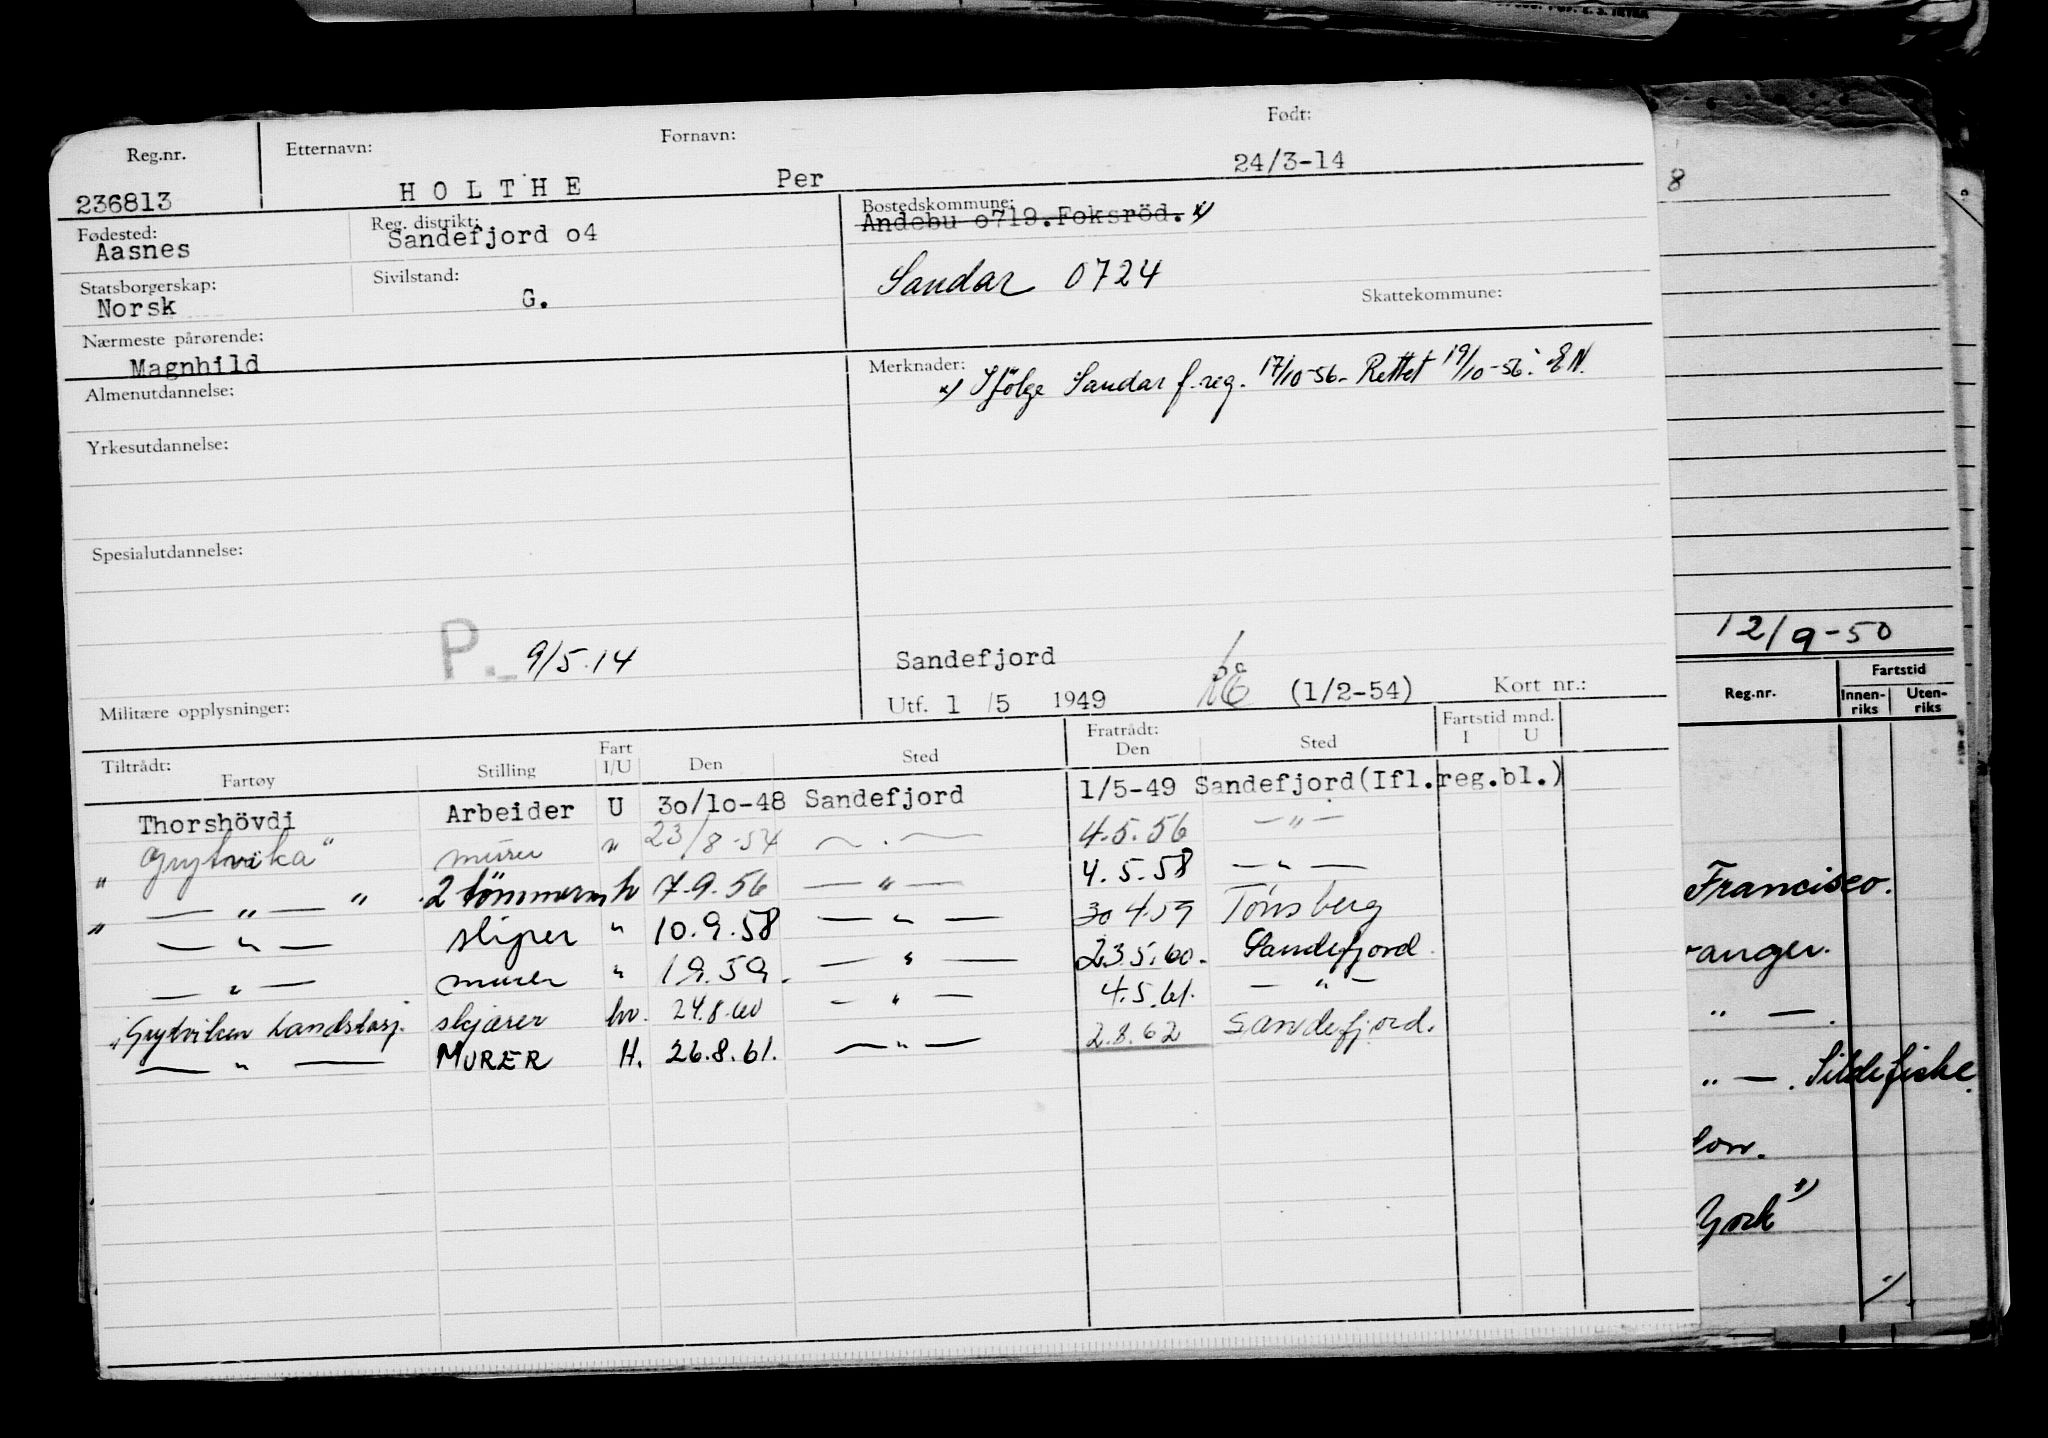 Reg.nr. Etternavn: Fornavn: Født:
236813 H O L T H E Per 24/3-14
Fødested: Reg. distrikt: Bostedskommune:
Aasnes Sandefjord o4 Andebu o719.Foksröd. x/
Statsborgerskap: Sivilstand: Sandar 0724
Norsk G. Skattekommune:
Nærmeste pårørende:
Magnhild
Merknader:
x/ Ifölge Sandar f.reg. 17/10-56. Rettet 19/10-56. EN.
Almenutdannelse:
Yrkesutdannelse:
Spesialutdannelse:
P. 9/5.14
Sandefjord
Militære opplysninger: Utf. 1 /5 1949 (1/2-54) Kort nr.:
Tiltrådt: Fratrådt: Fartstid mnd.
Fartøy Stilling Fart I/U Den Sted Den Sted I U
Thorshövdi Arbeider U 3o/1o-48 Sandefjord 1/5-49 Sandefjord(Ifl.reg.bl.)
"Grytvika" murer " 23/8-54 — . — 4.5.56 — " —
" — " — " 2 tömmerm hv 7.9.56 — " — 4.5.58 — " —
— " — sliper " 10.9.58 — " — 30 4.59 Tönsberg
— " — murer " 1.9.59. — " — 23.5.60. Sandefjord
"Grytviken Landstasj. skjærer hv. 24.8.60 — " — 4.5.61. — " —
— " — MURER H. 26.8.61. — " — 2.8.62 Sandefjord.
8
12/9-50
Reg.nr. Fartstid
Innen-riks Uten-riks
Francisco.
anger.
" — .
" — . Sildefiske.
York"